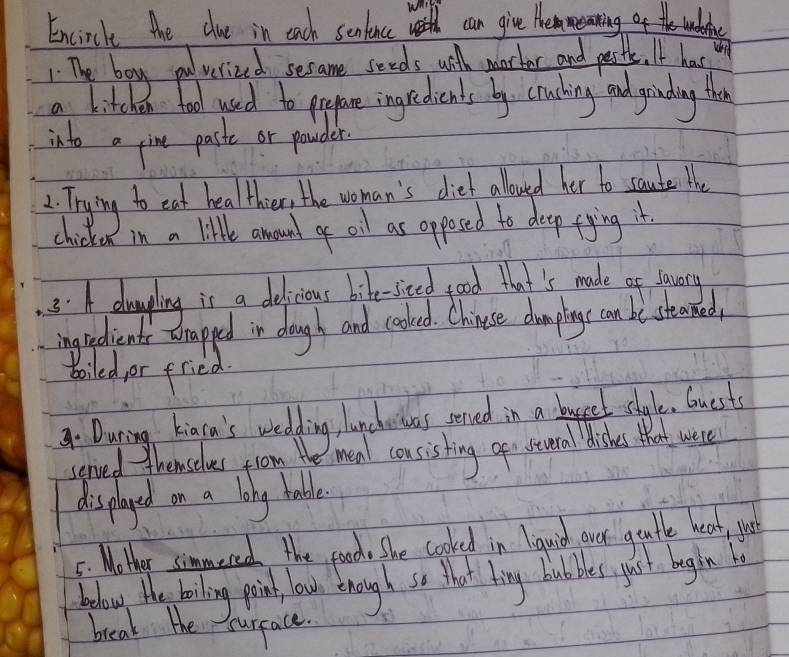 Encircle the clue in each sentence which can give the meaning of the underline word
1. The boy pulverized sesame seeds with mortar and pestle. It has
a kitchen tool used to prepare ingredients by crushing and grinding them
into a fine paste or powder.
2. Trying to eat healthier, the woman's diet allowed her to saute the
chicken in a little amount of oil as opposed to deep fying it.
3. A dumpling is a delicious bite-sized food that's made of savory
ingredients wrapped in dough and cooked. Chinese dumplings can be steamed,
boiled, or fried.
4. During kiara's wedding, lunch was served in a buffet style. Guests
served themselves from the meal consisting of several dishes that were
displayed on a long table.
5. Mother simmered the food. She cooked in liquid over gentle heat, just
below the boiling point, low enough so that tiny bubbles just begin to
break the surface.